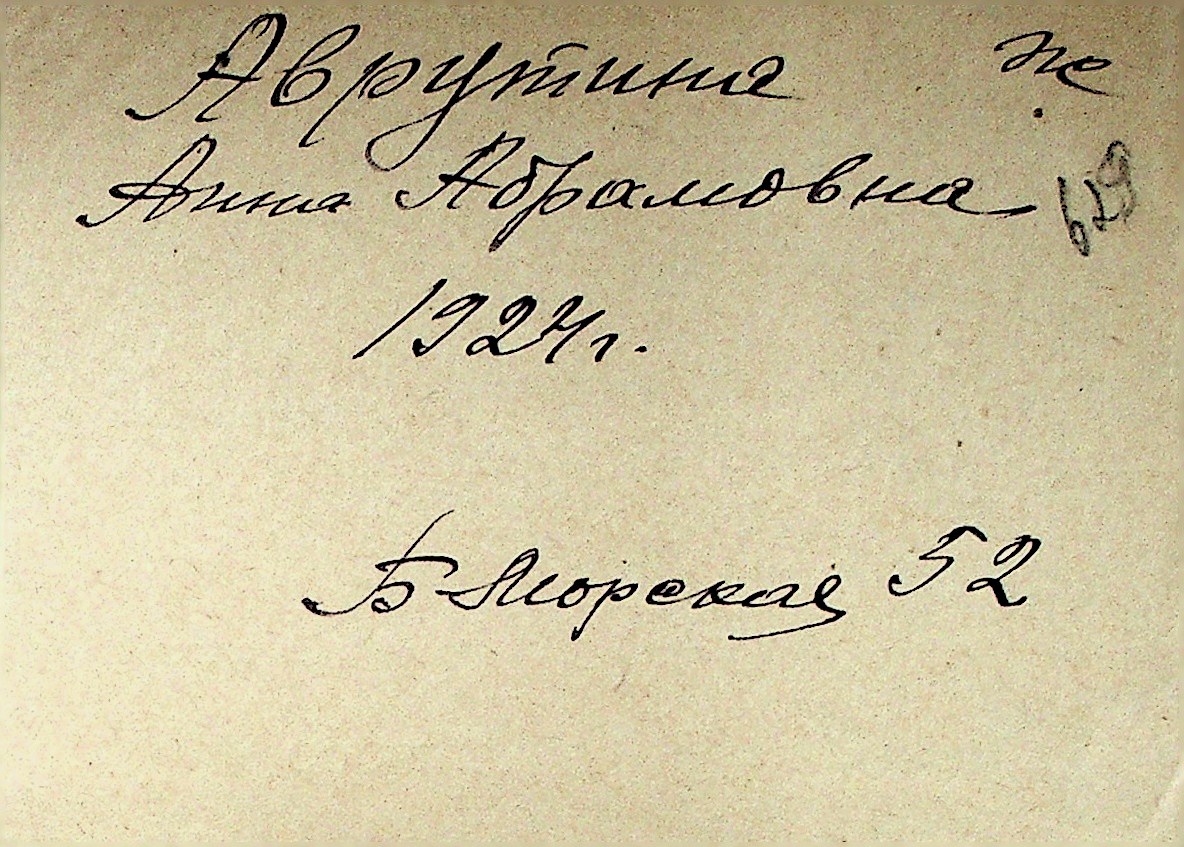 Аврутина же
Анна Абрамовна
629
1924г.
Б-Морская 52